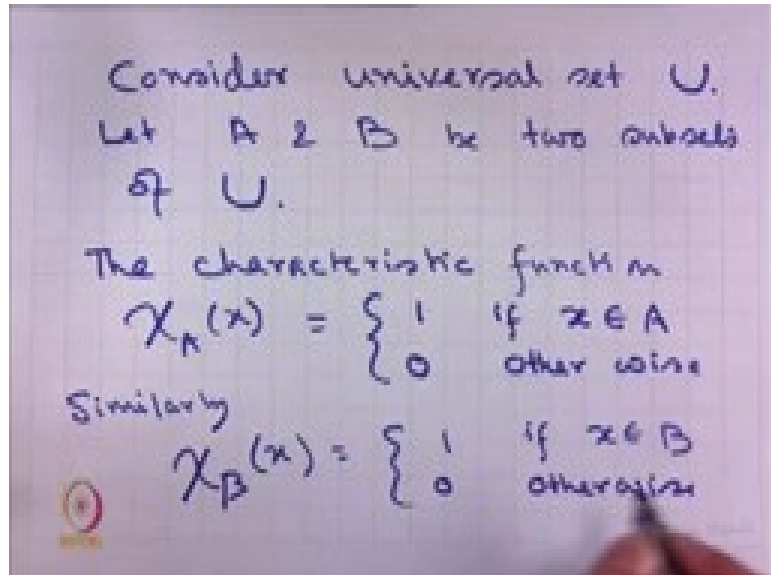 Consider universal set U.
Let A & B be two subsets
of U.
The characteristic function
χ_A(x) = { 1 if x ∈ A
0 other wise
Similarly
χ_B(x) = { 1 if x ∈ B
0 otherwise